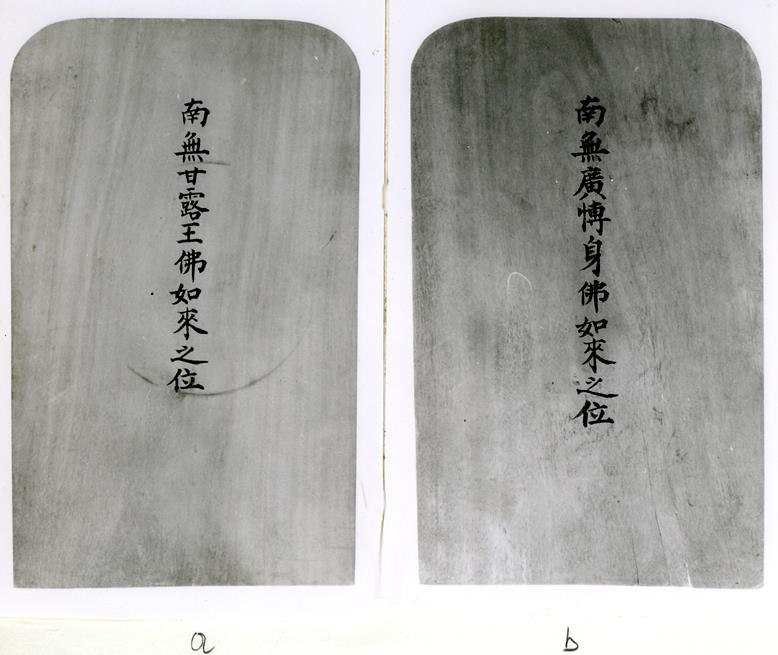 南無甘露王佛如來之位
南無廣愽身佛如來之位
a
b